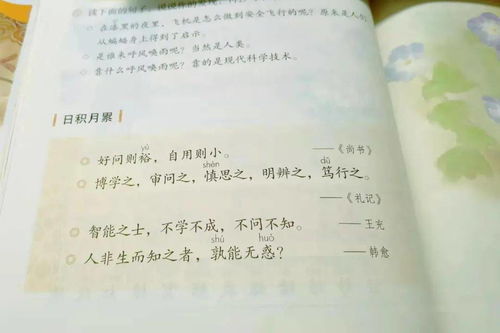 读下面的句子，说说你的发现。
在漆黑的夜里，飞机是怎么做到安全飞行的呢？原来是人们
从蝙蝠身上得到了启示。
是谁来呼风唤雨呢？当然是人类。
靠什么呼风唤雨呢？靠的是现代科学技术。
日积月累
yù
好问则裕，自用则小。 ——《尚书》
shèn dǔ
博学之，审问之，慎思之，明辨之，笃行之。
——《礼记》
智能之士，不学不成，不问不知。 ——王充
shú huò
人非生而知之者，孰能无惑？ ——韩愈